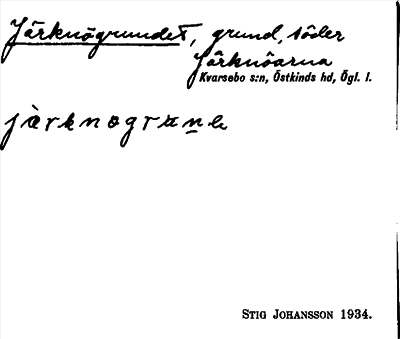 Järknögrundet, grund, söder
Järknöarna
Kvarsebo s:n, Östkinds hd, Ögl. l.
jàrknogrunḙ
Stig Johansson 1934.